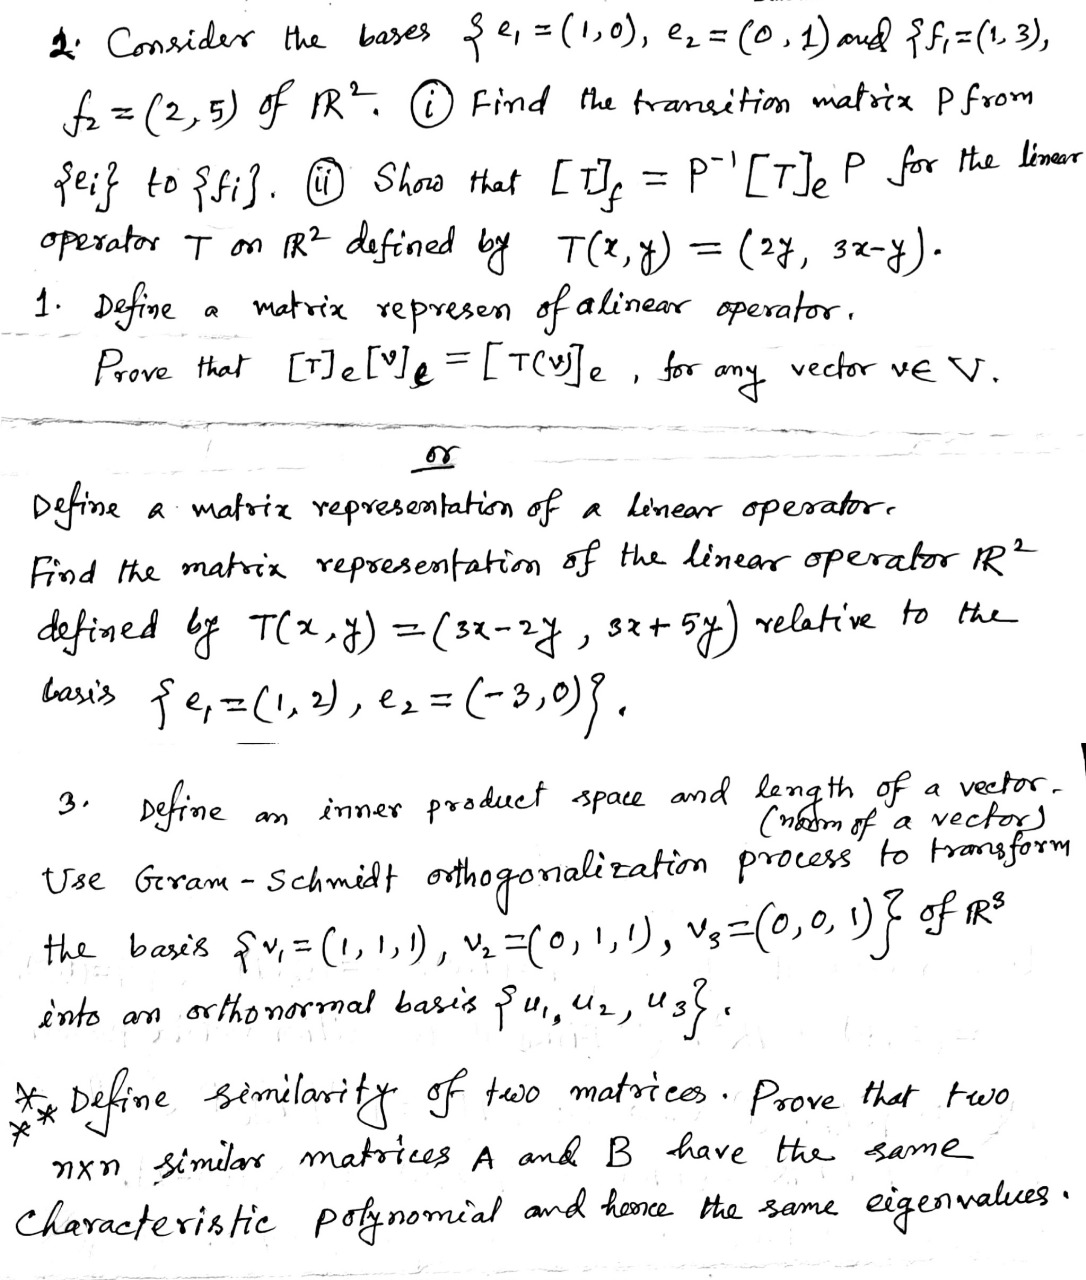 2. Consider the bases {e₁ = (1,0), e₂ = (0,1) and {f₁ = (1,3),
f₂ = (2,5) of ℝ². (i) Find the transition matrix P from
{ei} to {fi}. (ii) Show that [T]f = P⁻¹[T]e P for the linear
operator T on ℝ² defined by T(x,y) = (2y, 3x-y).
1. Define a matrix represen of a linear operator.
Prove that [T]e[v]e = [T(v)]e, for any vector v∈ V.
or
Define a matrix representation of a linear operator.
Find the matrix representation of the linear operator ℝ²
defined by T(x,y) = (3x-2y, 3x+5y) relative to the
basis {e₁=(1,2), e₂ = (-3,0)}.
3. Define an inner product space and length of a vector.
(norm of a vector)
Use Gram-Schmidt orthogonalization process to transform
the basis {v₁ = (1,1,1), v₂ = (0,1,1), v₃ = (0,0,1)} of ℝ³
into an orthonormal basis {u₁, u₂, u₃}.
*** Define similarity of two matrices. Prove that two
nxn similar matrices A and B have the same
characteristic polynomial and hence the same eigenvalues.